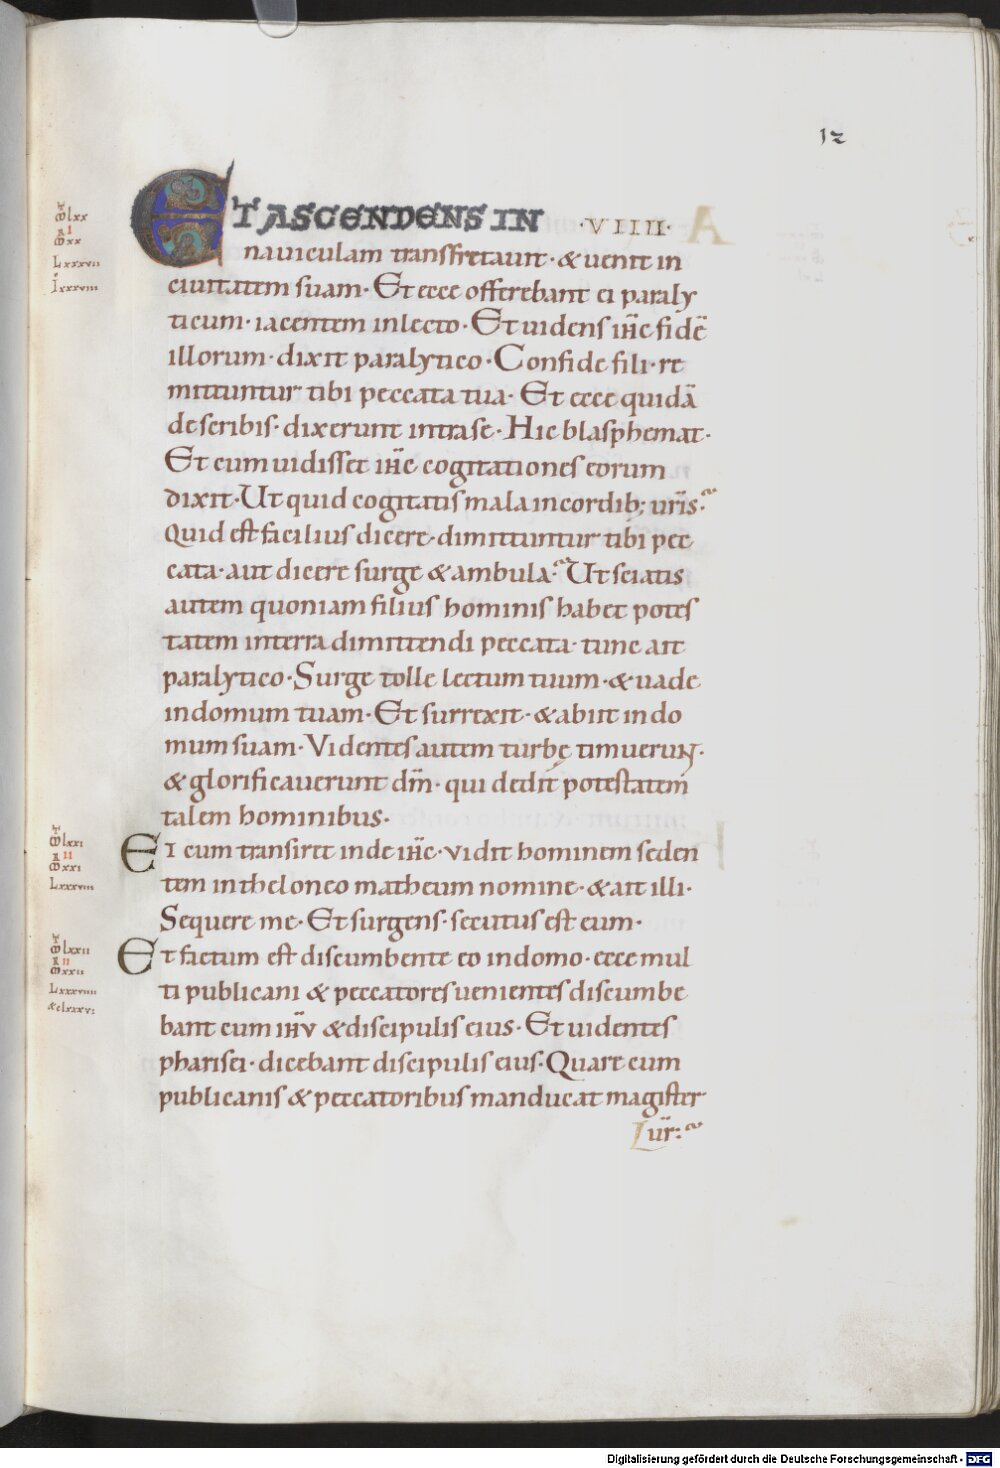 12
ET ASCENDENS IN ·VIIII·
nauiculam transfretauit· & uenit in
ciuitatem suam· Et ecce offerebant ei paraly
ticum· iacentem inlecto· Et uidens ihc̅ fidē
illorum· dixit paralytico· Confide fili· re
mittuntur tibi peccata tua· Et ecce quidā
describis· dixerunt intrase· Hic blasphemat·
Et cum uidisset ihc̅ cogitationes eorum
dixit· Ut quid cogitatis mala incordib; uris̅·
Quid est facilius dicere· dimittuntur tibi pec
cata· aut dicere surge & ambula· Ut sciatis
autem quoniam filius hominis habet potes
tatem interra dimittendi peccata· tunc ait
paralytico· Surge tolle lectum tuum· & uade
indomum tuam· Et surrexit· & abiit indo
mum suam· Videntes autem turbę timuerunt·
& glorificauerunt dm̅· qui dedit potestatem
talem hominibus·
Et cum transiret inde ihc̅· vidit hominem seden
tem intheloneo matheum nomine· & ait illi·
Sequere me· Et surgens· secutus est eum·
Et factum est discumbente eo indomo· ecce mul
ti publicani & peccatores uenientes discumbe
bant cum ihv̅ & discipulis eius· Et uidentes
pharisei· dicebant discipulis eius· Quare cum
publicanis & peccatoribus manducat magister
ur̅:
lxx
I
xx
Lxxxvii
lxxviii
lxxi
II
xxi
Lxxxviii
lxxii
II
xxii
Lxxxviiii
&clxxxvi
Digitalisierung gefördert durch die Deutsche Forschungsgemeinschaft - DFG